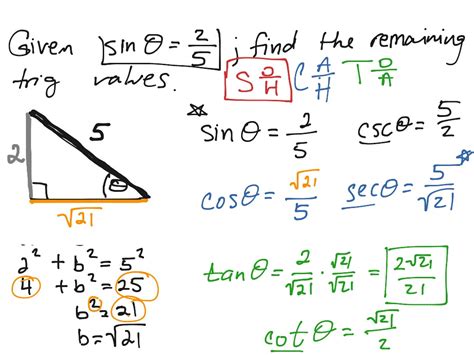 Given |sin θ = 2/5| ; find the remaining
trig values. S O/H C A/H T O/A
2 5 θ √21
sin θ = 2/5 csc θ = 5/2
cos θ = √21/5 sec θ = 5/√21
2² + b² = 5²
4 + b² = 25
b² = 21
b = √21
tan θ = 2/√21 · √21/√21 = 2√21/21
cot θ = √21/2